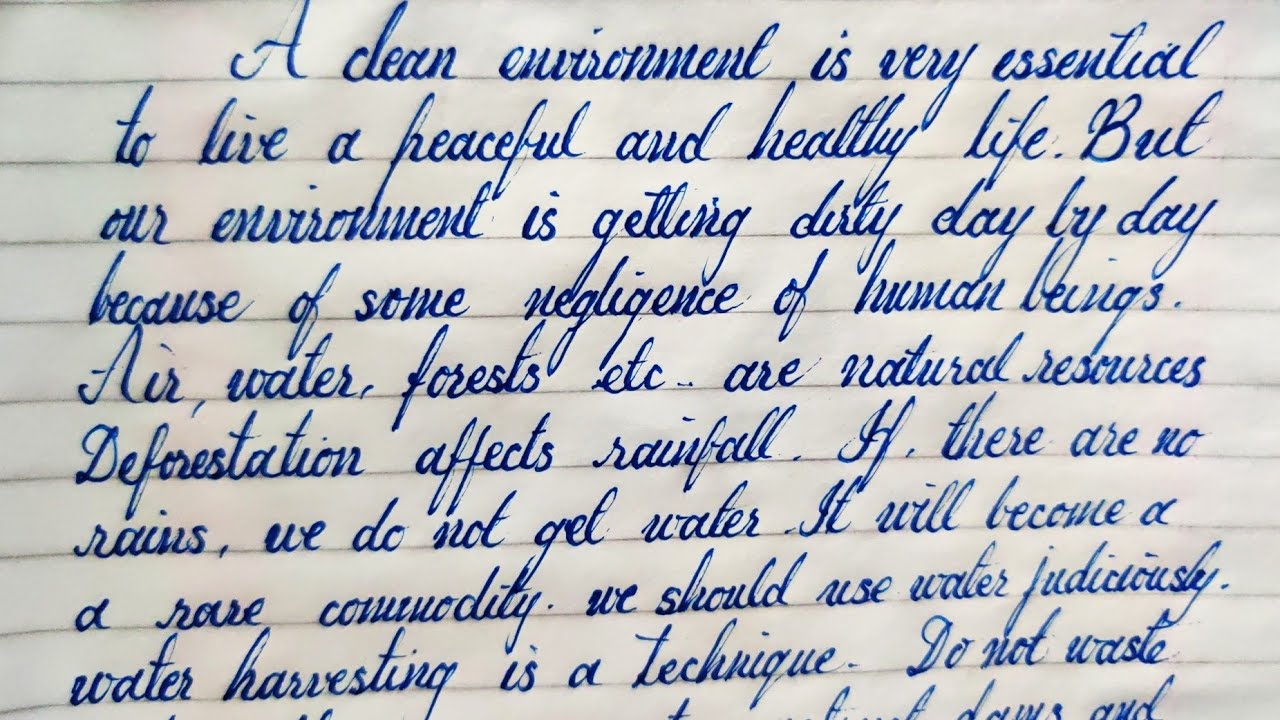 A clean environment is very essential
to live a peaceful and healthy life. But
our environment is getting dirty day by day
because of some negligence of human beings.
Air, water, forests etc.. are natural resources
Deforestation affects rainfall. If, there are no
rains, we do not get water. It will become a
a rare commodity. we should use water judiciously.
water harvesting is a technique. Do not waste
dams and